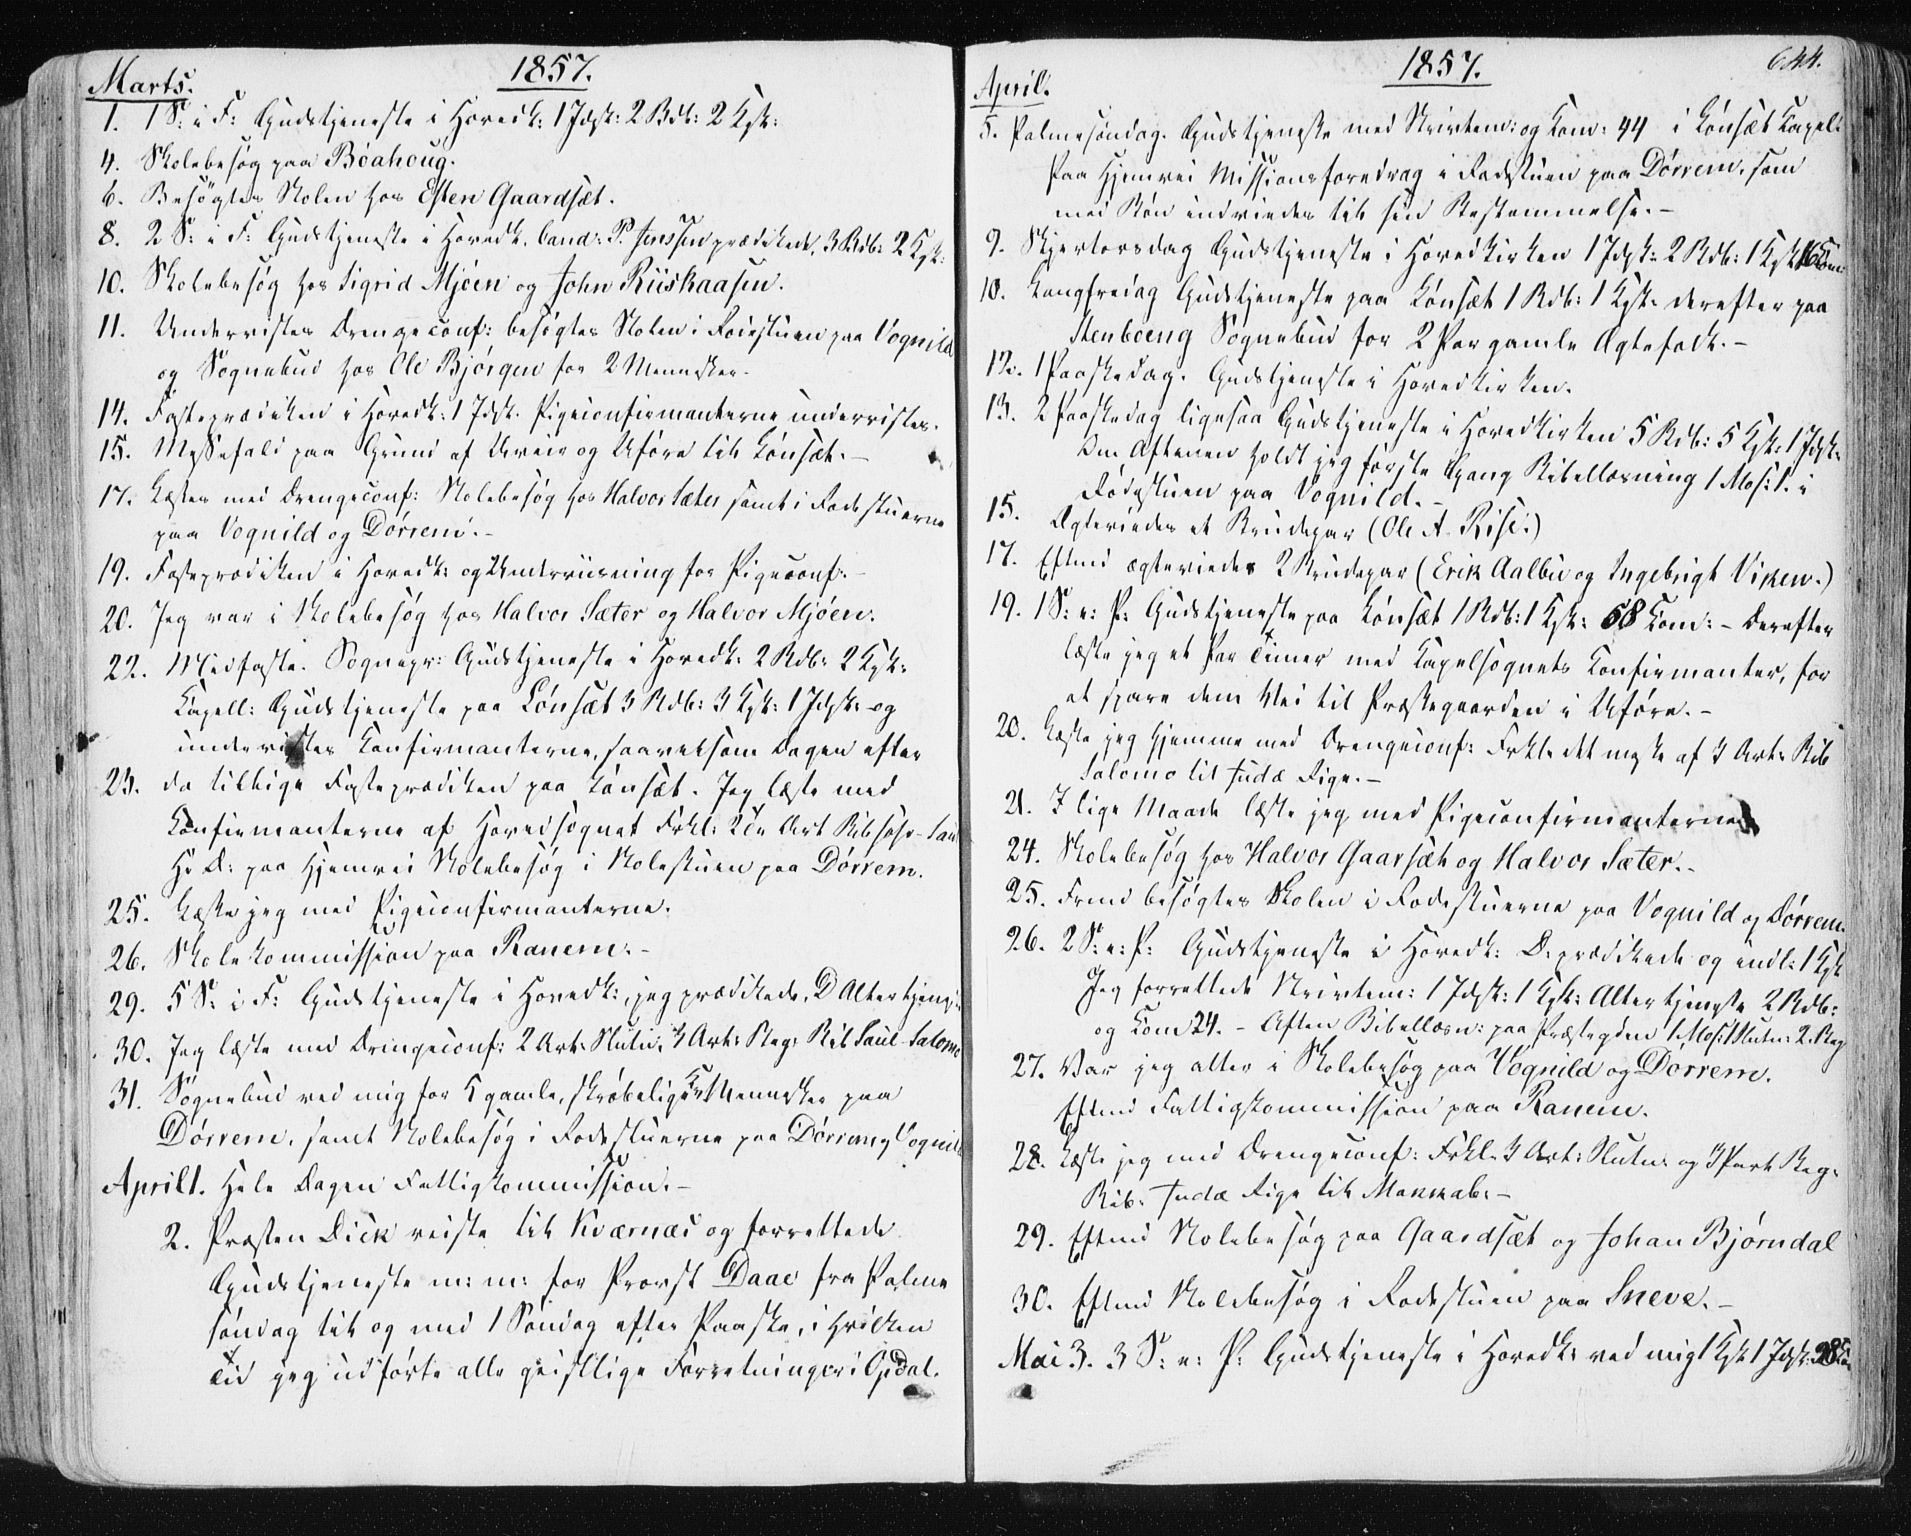 1857.
Marts.
1. 1 S: i F: Gudstjeneste i Hovedk: 1 Jdsk: 2 Brdb: 2 Kgk:
4. Skolebesøg paa Bóahoug.
6. Besøgtes Skolen hos Esten Gaardsæt.
8. 2 S: i F: Gudstjeneste i Hovedk. Cand: P. Jenssen prædikede, 3 Rdb: 2 Kgk:
10. Skolebesøg hos Sigrid Mjóen og John Riiskaasen.
11. Undervistes Drengeconf: besøgtes Skolen i Rodestuen paa Vognild
og Sognebud hos Ole Bjórgen for 2 Mennesker.
14. Fasteprædiken i Hovedk: 1 Jdsk. Pigeconfirmanterne undervistes.
15. Messefald paa Grund af Uveir og Uføre til Lønsæt. –
17. Læstes med Drengeconf: Skolebesøg hos Halvor Sæter samt i Rodestuerne
paa Vognild og Dørrem. –
19. Fasteprædiken i Hovedk: og Underviisning for Pigeconf. –
20. Jeg var i Skolebesøg hos Halvor Sæter og Halvor Mjóen.
22. Midfaste. Sognepr: Gudstjeneste i Hovedk: 2 Rdb: 2 Kgk:
Kapell: Gudstjeneste paa Lønsæt 3 Rdb: 3 Kgk: 1 Jdsk: og
undervistes Konfirmanterne, saavelsom Dagen efter
23. da tillige Fasteprædiken paa Lønsæt. Jeg læste med
Konfirmanterne af Hovedsognet Frkl: 2den Art Bib
Hr D: paa Hjemvei Skolebesøg i Skolestuen paa Dørrem.
25. Læste jeg med Pigeconfirmanterne.
26. Skolekommission paa Ranem. –
29. 5 S: i F: Gudstjeneste i Hovedk:, jeg prædikede, D Altertjeneste
30. Jeg læste med Drengeconf: 2 Art: Slutn, 3 Art: Beg: Bib Saul-Salomo
31. Sognebud ved mig for 5 gamle, skrøbelige Mennesker paa
Dørrem, samt Skolebesøg i Rodestuerne paa Dørrem og Vognild
April 1. Hele Dagen Fattigkommission. –
2. Præsten Dick reiste til Kværnæs og forrettede
Gudstjeneste m: m: for Provst Daae fra Palme
søndag til og med 1 Søndag efter Paaske, i hvilken
Tid jeg udførte alle geistlige Forretninger i Opdal.
1857.
644.
April.
5. Palmesøndag. Gudstjeneste med Skriftem: og Kom: 44 i Lønsæt Kapel.
Paa Hjemvei Missionsforedrag i Rodestuen paa Dørrem, som
med Bøn indviedes til sin Bestemmelse. –
9. Skjertorsdag Gudstjeneste i Hovedkirken 1 Jdsk: 2 Rdb: 1 Kgk
10. Langfredag Gudstjeneste paa Lønsæt 1 Rdb: 1 Kgk: derefter paa
Stenboeng Sognebud for 2 Par gamle Ægtefolk. –
12. 1 Paaskedag. Gudstjeneste i Hovedkirken.
13. 2 Paaskedag ligesaa Gudstjeneste i Hovedkirken 5 Rdb: 5 Kgk: 1 Jdsk:
Om Aftenen holdt jeg første Gang Bibellæsning 1 Mos: 1. i
Rodestuen paa Vognild. –
15. Ægteviedes et Brudepar (Ole A. Rise.)
17. Eftmd ægteviedes 2 Brudepar (Erik Aalbu og Ingebrigt Viken.)
19. 1 S: e: P: Gudstjeneste paa Lønsæt 1 Rdb: 1 Kgk: 68 Kom: – Derefter
læste jeg et Par Timer med Kapelsognets Konfirmanter, for
at spare dem Vei til Præstegaarden i Uføre. –
20. Læste jeg hjemme med Drengeconf: Frkl. det meste af 3 Art: Bib
Salomo til Judæ Rige. –
21. I lige Maade læste jeg med Pigeconfirmanterne
24. Skolebesøg hos Halvor Gaarsæt og Halvor Sæter. –
25. Frmd besøgtes Skolen i Rodestuerne paa Vognild og Dørrem.
26. 2 S: e: P: Gudstjeneste i Hovedk: D. prædikede og indl: 1 Kgk
Jeg forrettede Skriftem: 1 Jdsk: 1 Kgk: Altertjeneste 2 Rdb:
og Kom 24. – Aften Bibellæsn: paa Præstegden 1 Mos: 1 Slutn: 2. Beg
27. Var jeg atter i Skolebesøg paa Vognild og Dørrem.
Eftmd Fattigkommission paa Ranem.
28. Læste jeg med Drengeconf: Frkl. 3 Art: Slutn. og 3 Part Beg:
Bib: Judæ Rige til Makkab: –
29. Eftmd Skolebesøg paa Gaardsæt og Johan Bjørndal
30. Eftmd Skolebesøg i Rodestuen paa Sneve. –
Mai 3. 3 S: e: P: Gudstjeneste i Hovedk: ved mig 1 Kgk 1 Jdsk: